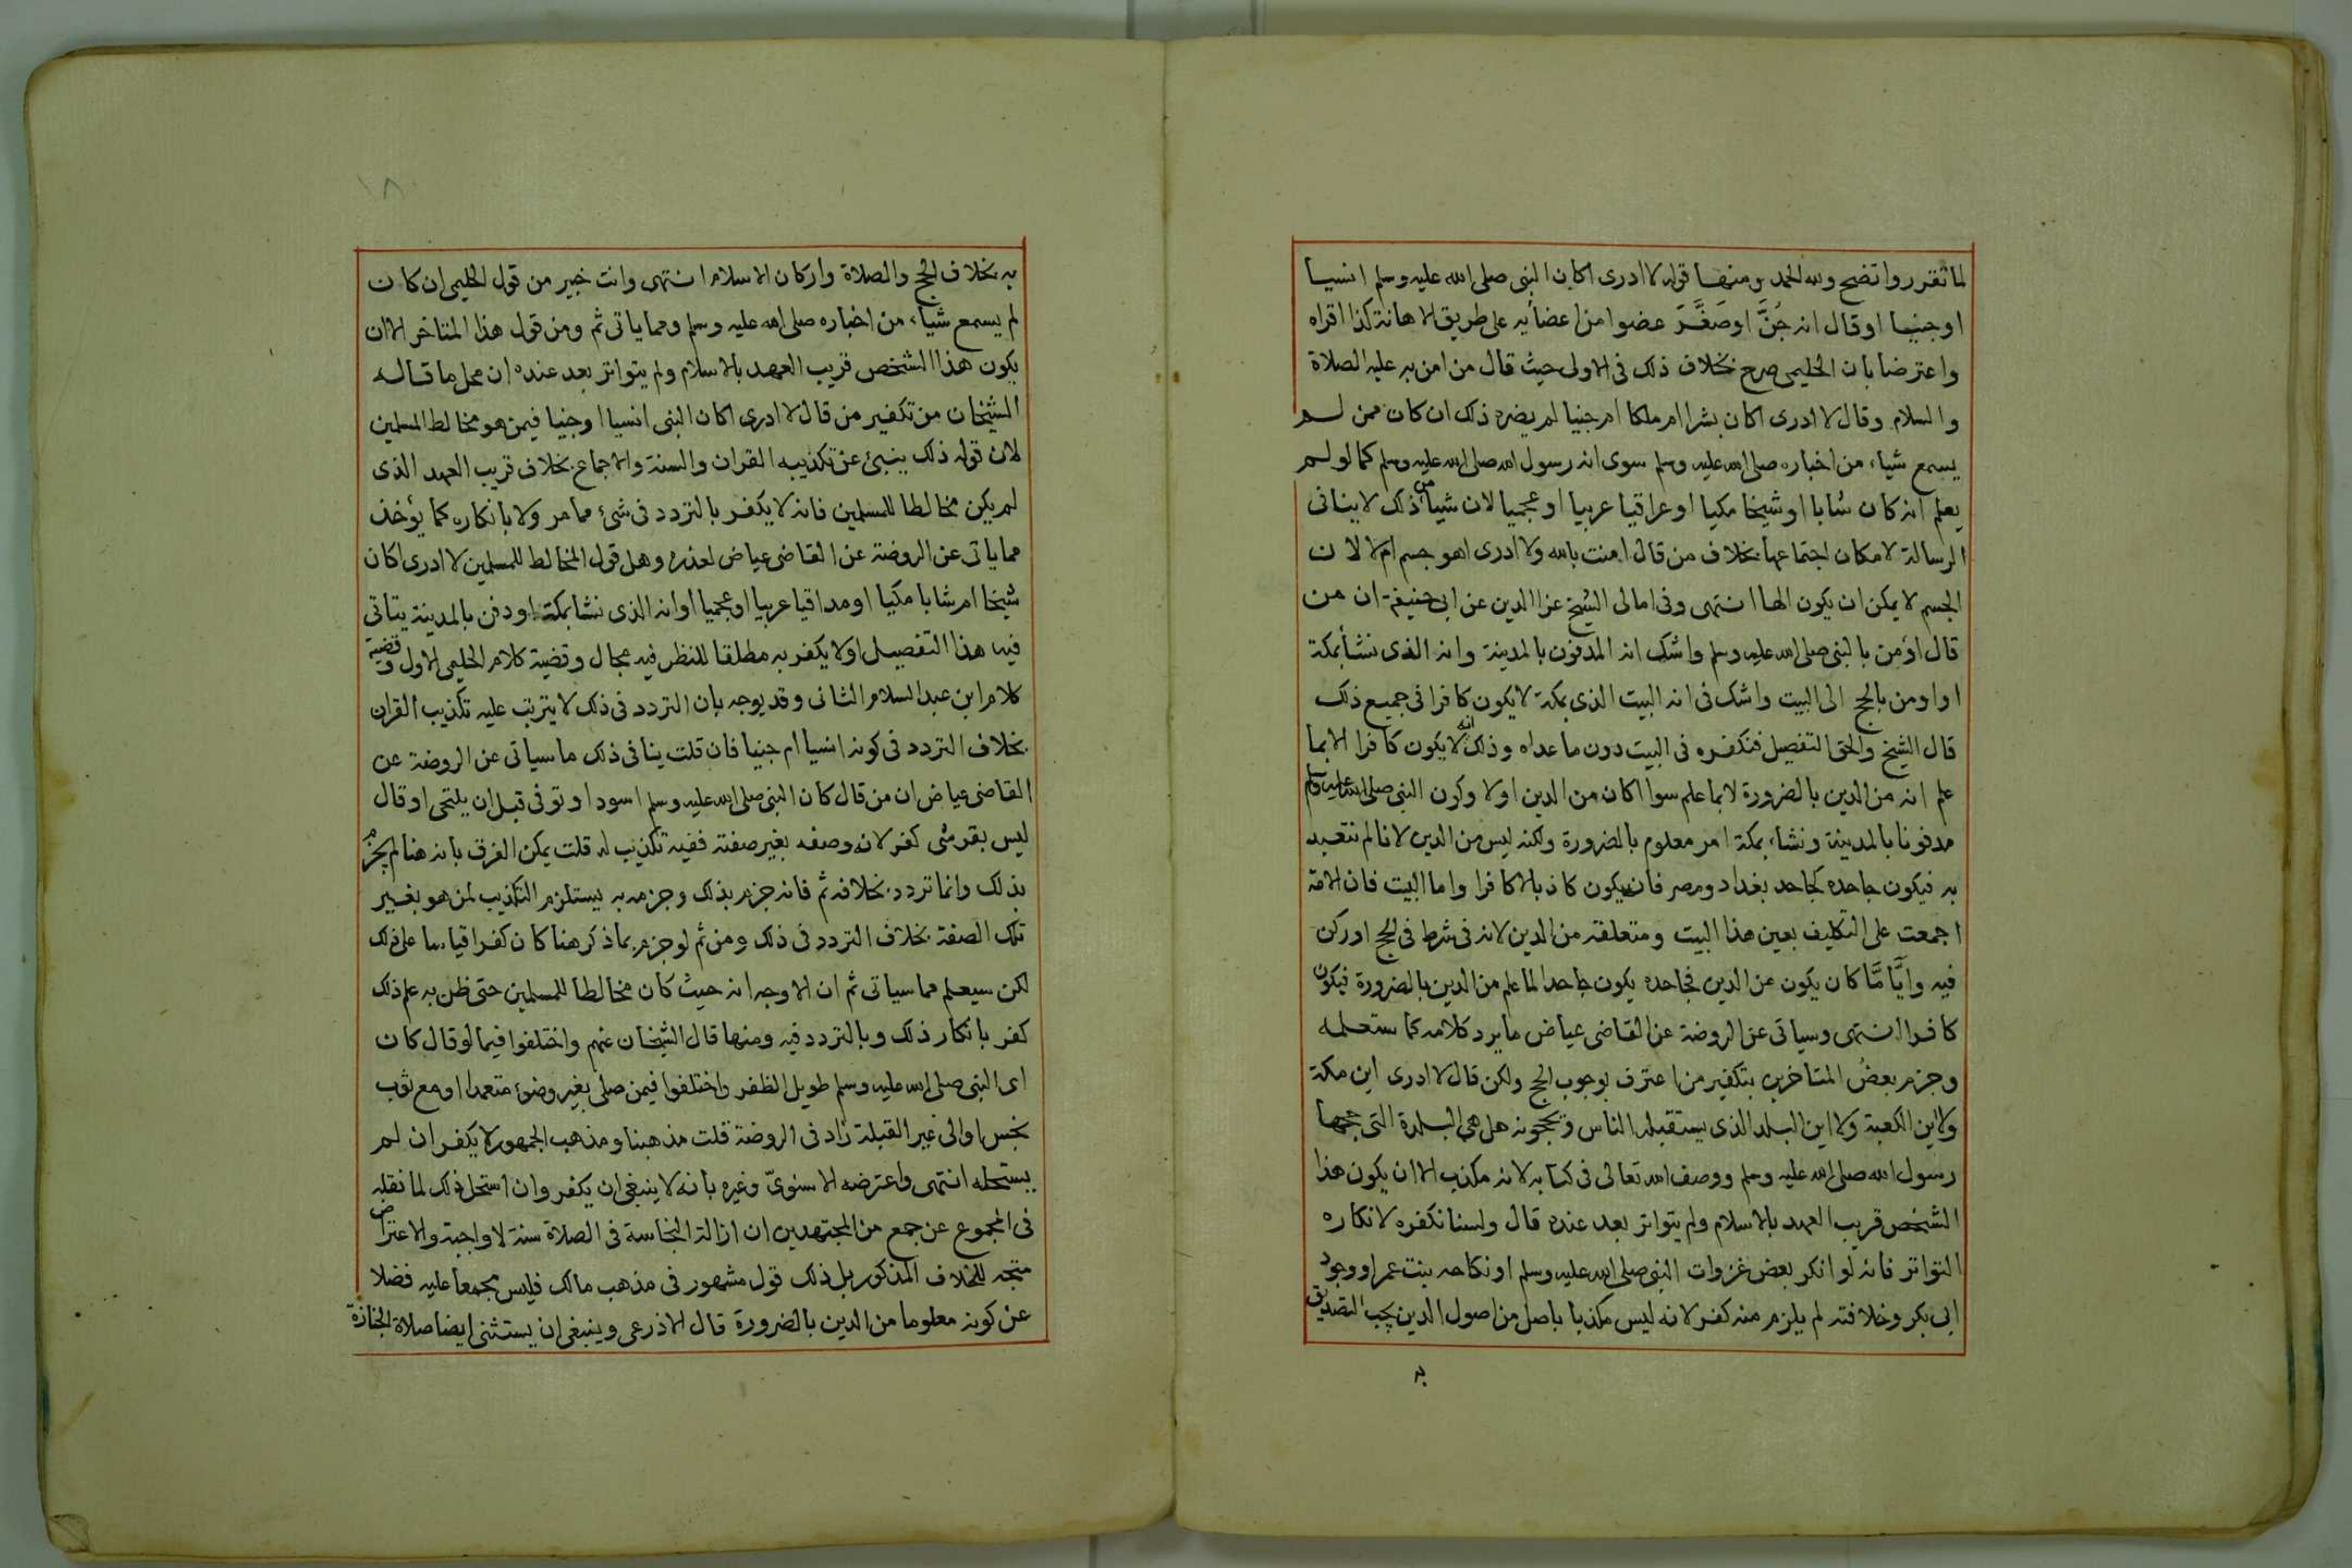 لما تقرر واتضح ولله الحمد ومنها قوله لا ادرى اكان النبى صلى الله عليه وسلم انسيا
او جنيا او قال انه جُنَّ او صَغَّرَ عضوا من اعضائه على طريق الاهانة كذا اقراه
واعترضا بان الحليمى صرح بخلاف ذلك فى الاولى حيث قال من امن به عليه الصلاة
والسلام وقال لا ادرى اكان بشرا ام ملكا ام جنيا لم يضره ذلك ان كان ممن لم
يسمع شياء من اخباره صلى الله عليه وسلم سوى انه رسول الله صلى الله عليه وسلم كما لو لم
يعلم انه كان شابا او شيخا مكيا او عراقيا عربيا او عجميا لان شيأ من ذلك لا ينافى
الرسالة لامكان اجتماعها بخلاف من قال امنت بالله ولا ادرى اهو جسم ام لا لان
الجسم لا يمكن ان يكون الها انتهى وفى امالى الشيخ عز الدين عن ابى حنيفة ان من
قال اؤمن بالنبى صلى الله عليه وسلم واشك انه المدفون بالمدينة وانه الذى نشأ بمكة
او اومن بالحج الى البيت واشك فى انه البيت الذى بمكة لا يكون كافرا فى جميع ذلك
قال الشيخ والحق التفصيل فنكفره فى البيت دون ما عداه وذلك انه لا يكون كافرا الا بما
علم انه من الدين بالضرورة لا بما علم سوا اكان من الدين او لا وكون النبى صلى الله عليه وسلم
مدفونا بالمدينة ونشاء بمكة امر معلوم بالضرورة ولكنه ليس من الدين لانا لم نتعبد
به فيكون جاحده كجاحد بغداد ومصر فانه يكون كاذبا لا كافرا واما البيت فان الامة
اجمعت على التكليف بعين هذا البيت ومتعلقته من الدين لانه فى شرط فى الحج او ركن
فيه وايًّا مَّا كان يكون من الدين فجاحده يكون جاحدا لما علم من الدين بالضرورة فيكون
كافرا انتهى وسياتى عن الروضة عن القاضى عياض ما يرد كلامه كما ستعلمه
وجزم بعضُ المتاخرين بتكفير من اعترف بوجوب الحج ولكن قال لا ادرى اين مكة
ولا اين الكعبة ولا اين البلد الذى يستقبله الناس ويحجونه هل هى البلدة التى حجها
رسول الله صلى الله عليه وسلم ووصف الله تعالى فى كتابه لانه مكذب الا ان يكون هذا
الشخص قريب العهد بالاسلام ولم يتواتر بعد عنده قال ولسنا نكفره لانكاره
التواتر فانه لو انكر بعض غزوات النبى صلى الله عليه وسلم او نكاحه بنت عمر او وجود
ابى بكر وخلافته لم يلزم منه كفر لانه ليس مكذبا باصل من اصول الدين يجب التصديق
به
١٨
به بخلاف الحج والصلاة واركان الاسلام انتهى وانت خبير من قول الحليمى ان كان
لم يسمع شيأء من اخباره صلى الله عليه وسلم ومما ياتى ثم ومن قول هذا المتاخر الا ان
يكون هذا الشخص قريب العهد بالاسلام ولم يتواتر بعد عنده ان محل ما قاله
الشيخان من تكفير من قال لا ادرى اكان النبى انسيا او جنيا فيمن هو مخالط المسلمين
لان قوله ذلك ينبئ عن تكذيبه القران والسنة والاجماع بخلاف قريب العهد الذى
لم يكن مخالطا للمسلمين فانه لا يكفر بالتردد فى شئ مما مر ولا بانكاره كما يؤخذ
مما ياتى عن الروضة عن القاضى عياض لعذره وهل قول المخالط للمسلمين لا ادرى اكان
شيخا ام شابا مكيا او مداقيا عربيا او عجميا او انه الذى نشا بمكة او دفن بالمدينة يتاتى
فيه هذا التفصيل او لا يكفر به مطلقا للنظر فيه مجال وقضية كلام الحليمى الاول وقضية
كلام ابن عبد السلام الثانى وقد يوجه بان التردد فى ذلك لا يترتب عليه تكذيب القران
بخلاف التردد فى كونه انسيا ام جنيا فان قلت ينافى ذلك ما سياتى عن الروضة عن
القاضى عياض ان من قال كان النبى صلى الله عليه وسلم اسود او توفى قبل ان يلتحى او قال
ليس بقرشى كفر لانه وصفه بغير صفته ففيه تكذيب له قلت يمكن الفرق بانه هنا لم يجزم
بذلك وانما تردد بخلافه ثم فانه جزم بذلك وجزمه به يستلزم التكذيب لمن هو بغير
تلك الصفة بخلاف التردد فى ذلك ومن ثم لو جزم بما ذكر هنا كان كفرا قياسا على ذلك
لكن سيعلم مما سياتى ثم ان الاوجه انه حيث كان مخالطا للمسلمين حتى ظن به علم ذلك
كفر بانكار ذلك وبالتردد فيه ومنها قال الشيخان عنهم واختلفوا فيما لو قال كان
اى النبى صلى الله عليه وسلم طويل الظفر واختلفوا فيمن صلى بغير وضوء متعمدا او مع ثوب
نجس او الى غير القبلة زاد فى الروضة قلت مذهبنا ومذهب الجمهور لا يكفر ان لم
يستحله انتهى واعترضه الاسنوىّ وغيره بانه لا ينبغى ان يكفر وان استحل ذلك لما نقله
فى المجموع عن جمع من المجتهدين ان ازالة النجاسة فى الصلاة سنة لا واجبة والاعتراض
متجه للخلاف المذكور بل ذلك قول مشهور فى مذهب مالك فليس مجمعا عليه فضلا
عن كونه معلوما من الدين بالضرورة قال الاذرعى وينبغى ان يستثنى ايضا صلاة الجنازة